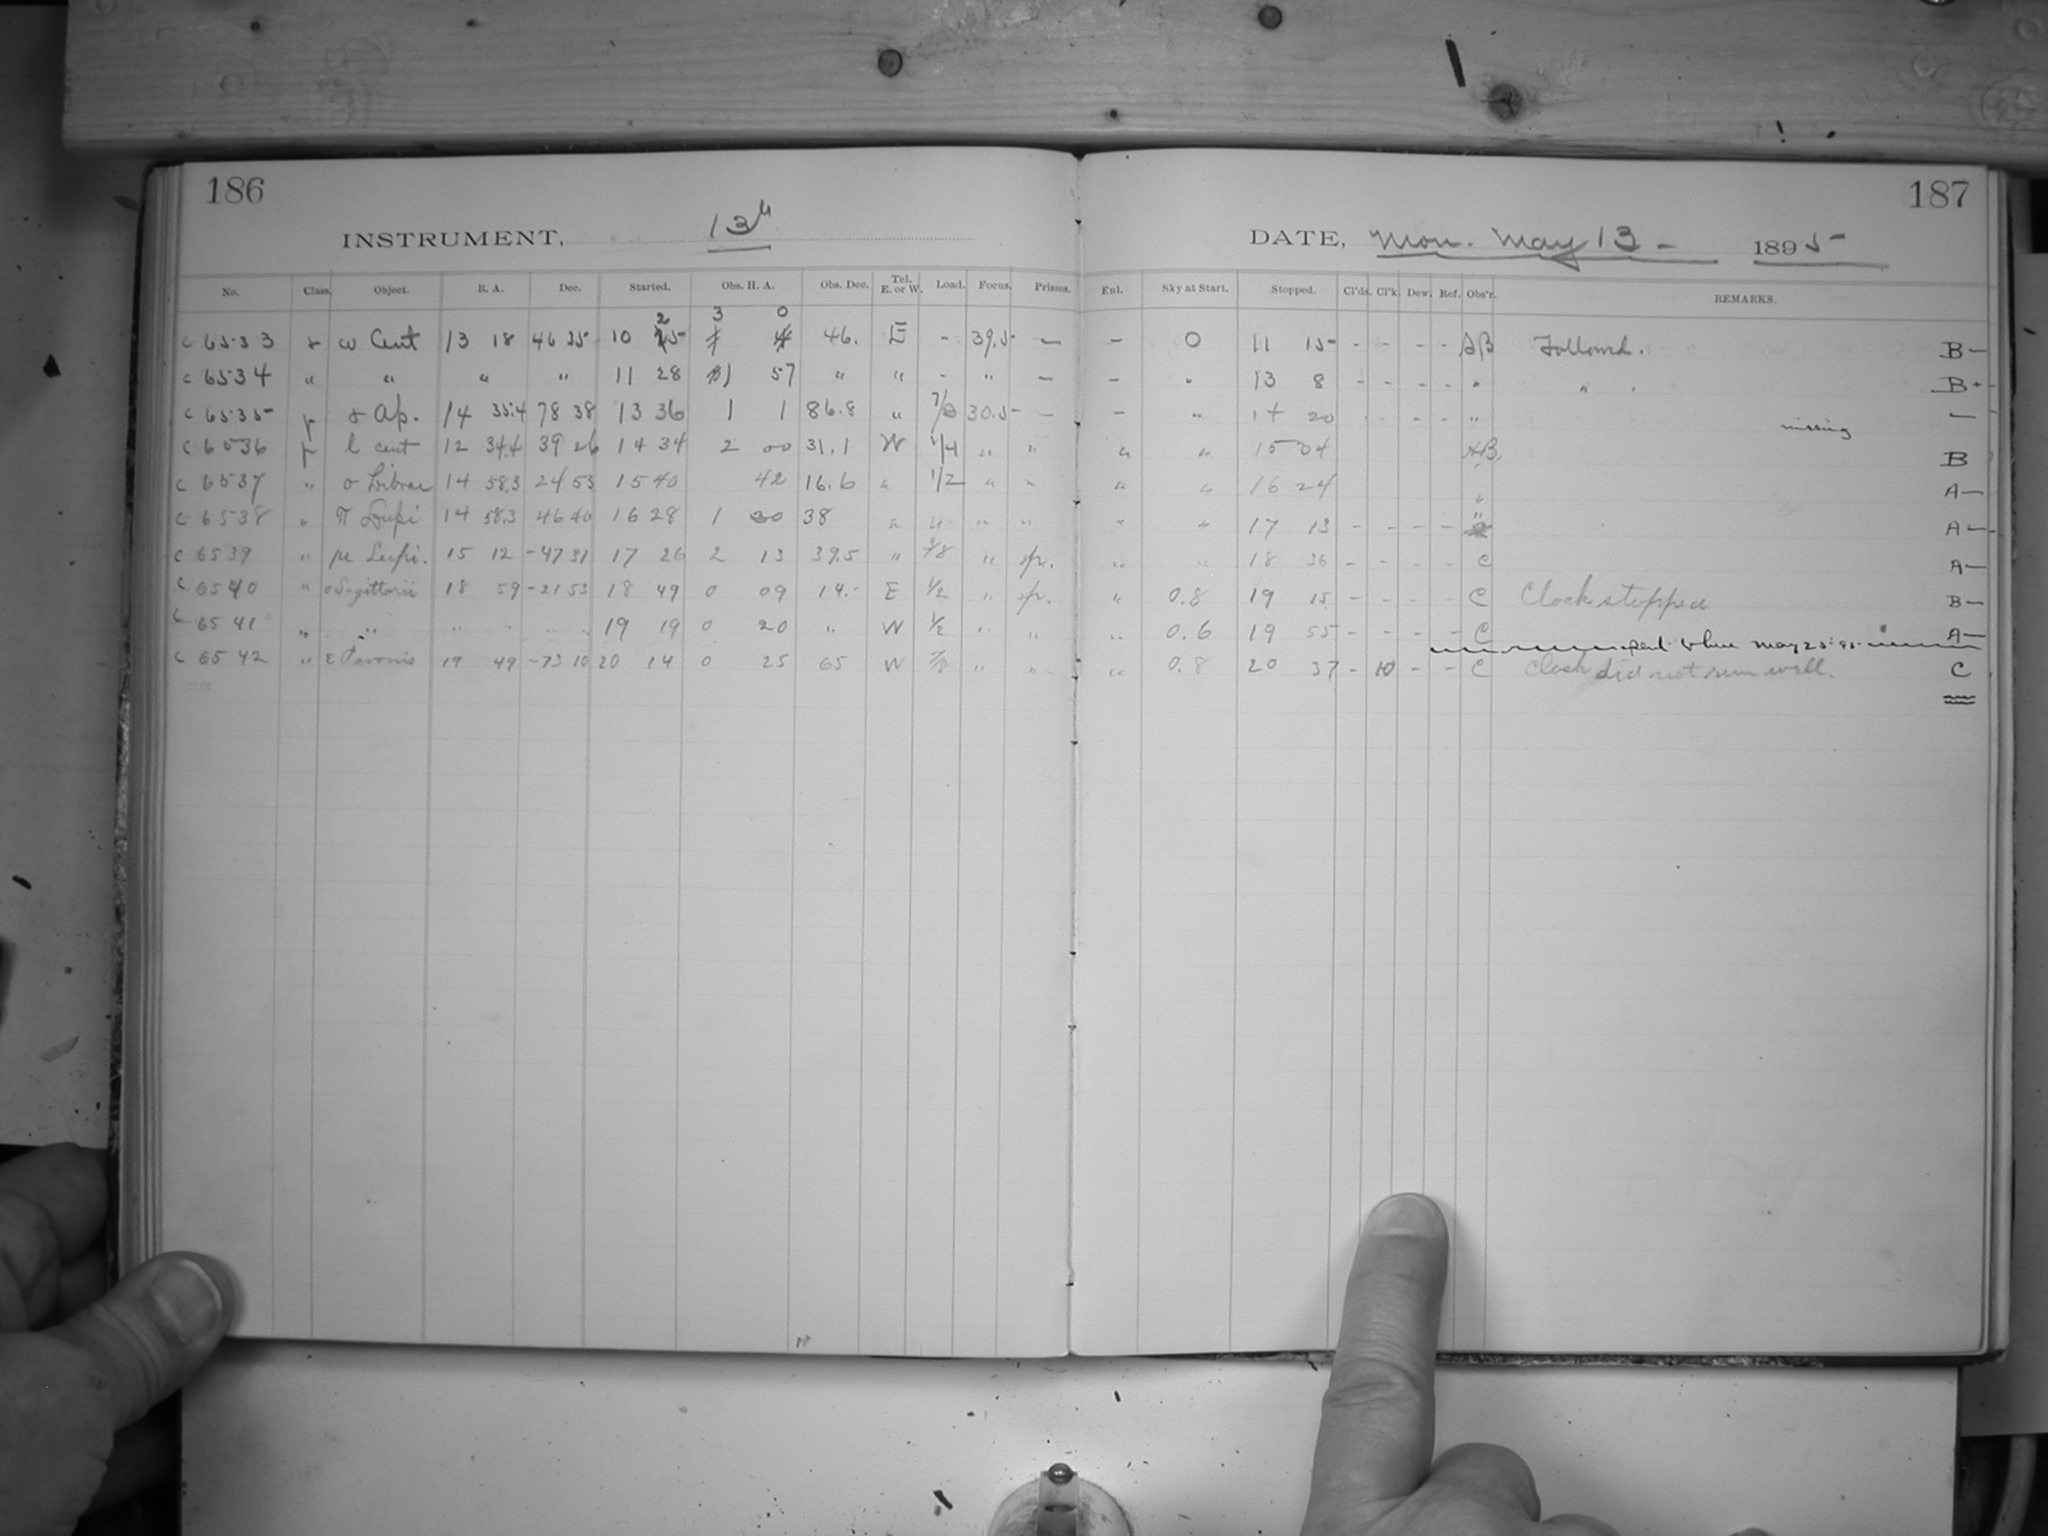 186
187
INSTRUMENT, 13"
DATE, Mon. May 13 - 1895
No. Class. Object. R. A. Dec. Started. Obs. H. A. Obs. Dec. Tel. E. or W. Load. Focus. Prisms. Enl. Sky at Start. Stopped. Cl'ds. Cl'k. Dew. Ref. Obs'r. REMARKS.
2 3 0
C 6533 ω Cent 13 18 46 35 10 46. E - 39.5 - - 0 11 15 - - - - SB Followed. B -
C 6534 " " " " 11 28 1 57 " " - " - - " 13 8 - - - - " " B+
C 6535 p Ap. 14 35.4 78 38 13 36 1 1 86.8 " 7/8 30.5 - - " 14 20 - - - " missing -
C 6536 p l cent 12 34.4 39 26 14 34 2 00 31.1 W 1/4 " " " " 15 04 B
C 6537 " σ Librae 14 58.3 24 53 15 40 42 16.6 " 1/2 " " " " 16 24 " A-
C 6538 " π Lupi 14 58.3 46 40 16 28 1 30 38 " " " " " " 17 13 - - - - " A-
C 6539 " μ Lupi. 15 12 -47 31 17 26 2 13 39.5 " " sp. " " 18 36 - - - - C A-
C 6540 " o Sagittarii 18 59 -21 53 18 49 0 09 14.- E 1/2 " sp. " 0.8 19 15 - - - - C Clock stopped B-
C 6541 " " " " " " 19 19 0 20 " W 1/2 " " " 0.6 19 55 - - - - C A-
when May 25 '95
C 6542 " ε Pavonis 19 49 -73 10 20 14 0 25 65 W " " " 0.8 20 37 - 10 - - C Clock did not run well. C